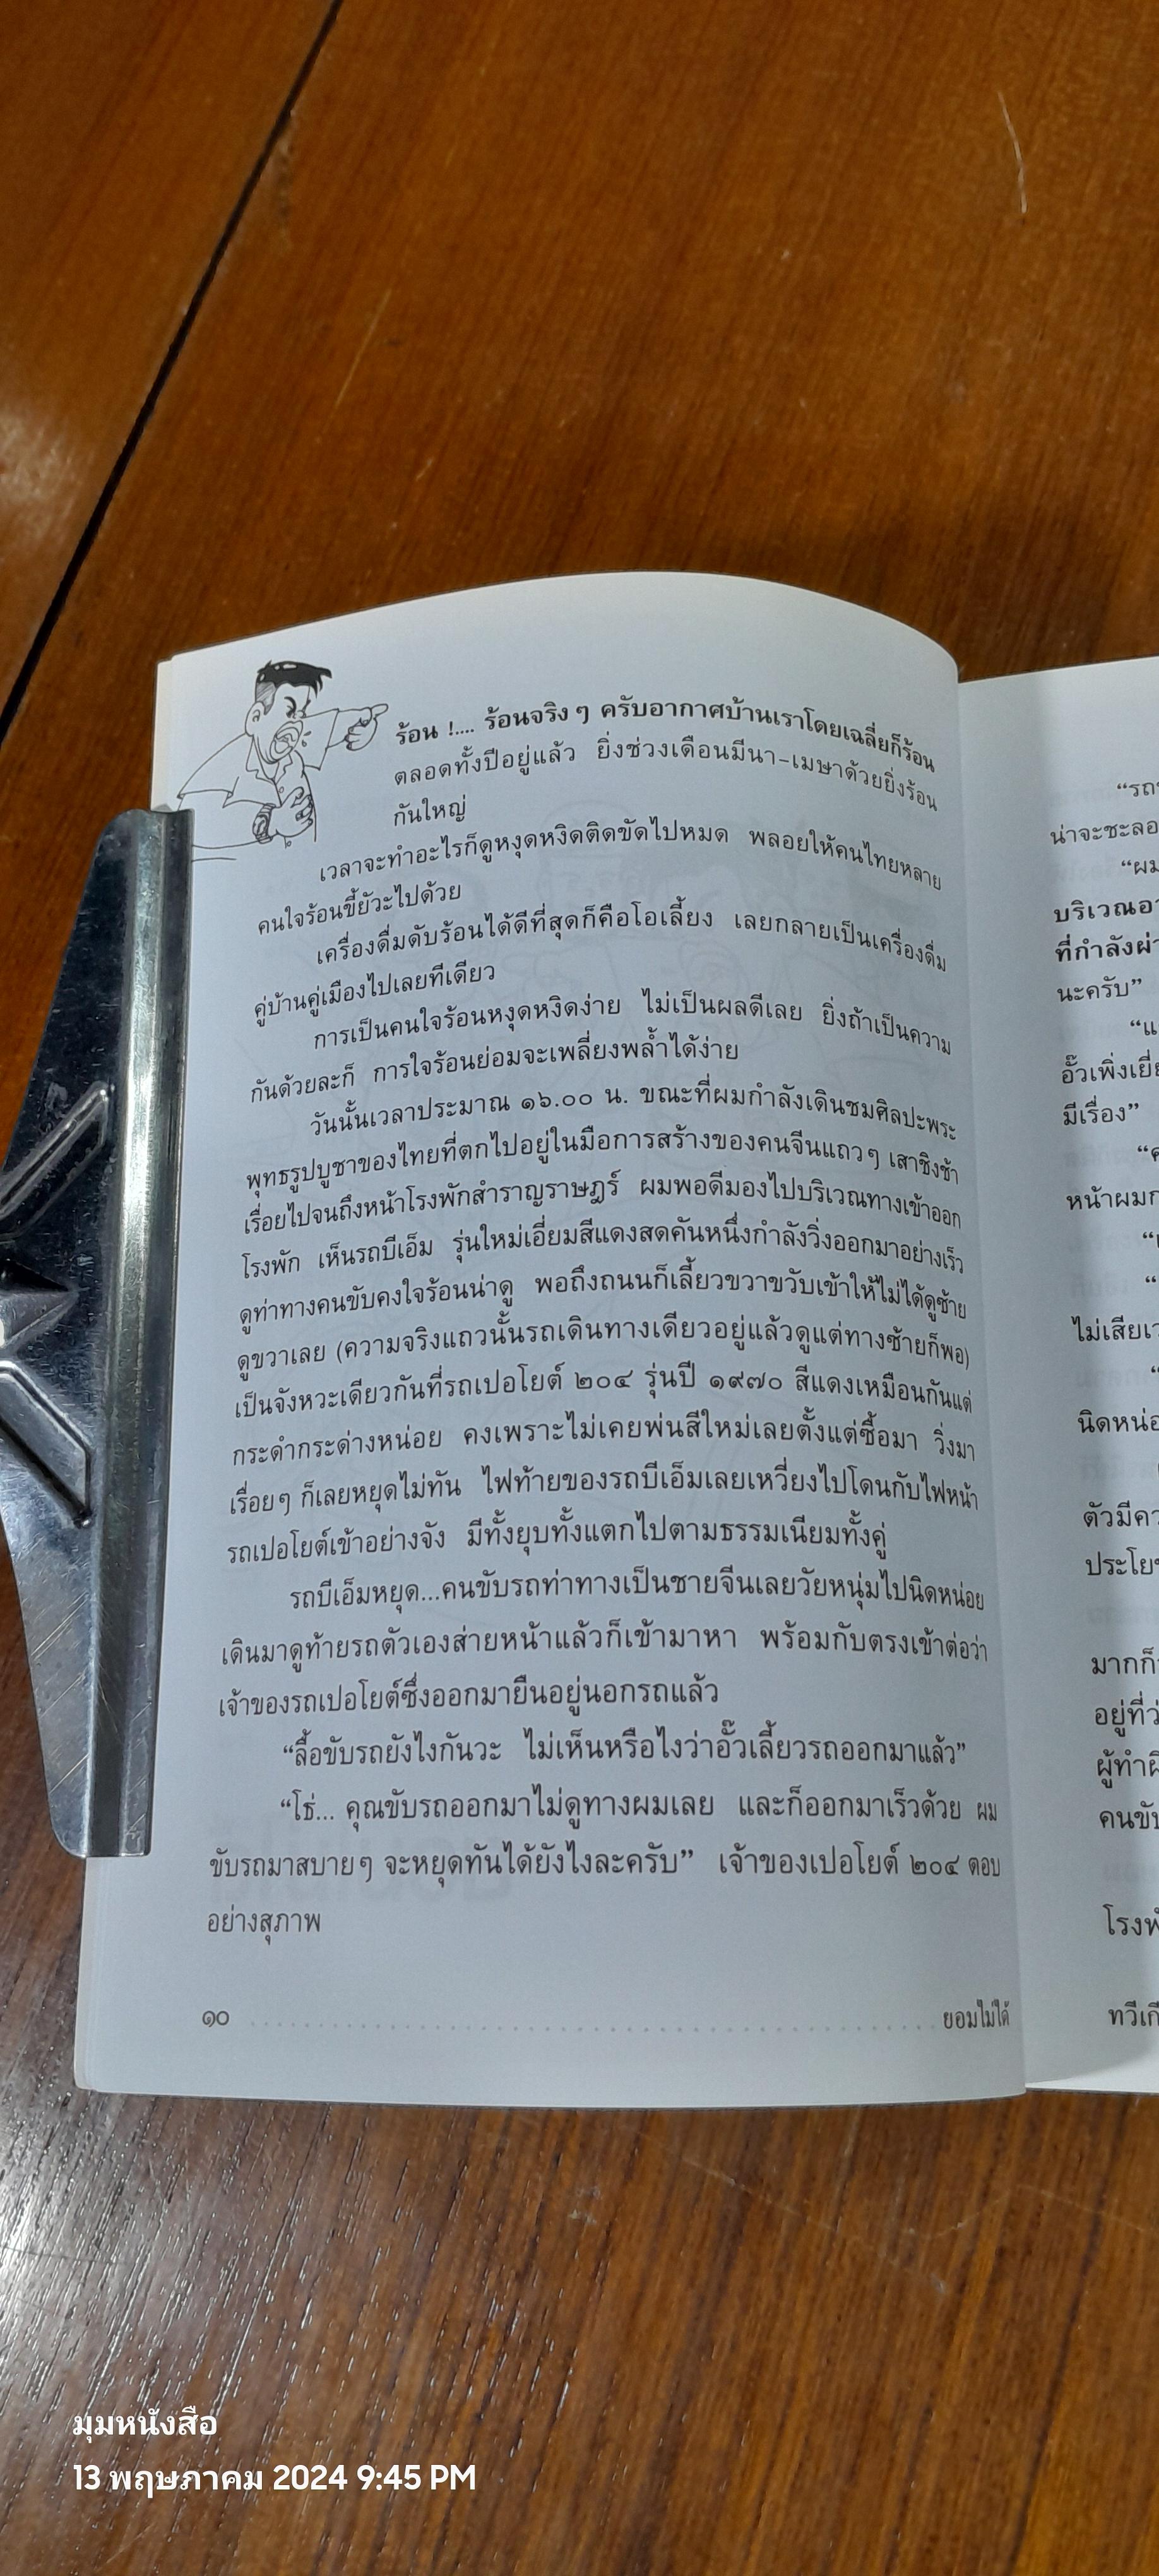 ร้อน !.... ร้อนจริงๆ ครับอากาศบ้านเราโดยเฉลี่ยก็ร้อน
ตลอดทั้งปีอยู่แล้ว ยิ่งช่วงเดือนมีนา-เมษาด้วยยิ่งร้อน
กันใหญ่
เวลาจะทำอะไรก็ดูหงุดหงิดติดขัดไปหมด พลอยให้คนไทยหลาย
คนใจร้อนขี้ยัวะไปด้วย
เครื่องดื่มดับร้อนได้ดีที่สุดก็คือโอเลี้ยง เลยกลายเป็นเครื่องดื่ม
คู่บ้านคู่เมืองไปเลยทีเดียว
การเป็นคนใจร้อนหงุดหงิดง่าย ไม่เป็นผลดีเลย ยิ่งถ้าเป็นความ
กันด้วยละก็ การใจร้อนย่อมจะเพลี่ยงพล้ำได้ง่าย
วันนั้นเวลาประมาณ ๑๖.๐๐ น. ขณะที่ผมกำลังเดินชมศิลปะพระ
พุทธรูปบูชาของไทยที่ตกไปอยู่ในมือการสร้างของคนจีนแถวๆ เสาชิงช้า
เรื่อยไปจนถึงหน้าโรงพักสำราญราษฎร์ ผมพอดีมองไปบริเวณทางเข้าออก
โรงพัก เห็นรถบีเอ็ม รุ่นใหม่เอี่ยมสีแดงสดคันหนึ่งกำลังวิ่งออกมาอย่างเร็ว
ดูท่าทางคนขับคงใจร้อนน่าดู พอถึงถนนก็เลี้ยวขวาขวับเข้าให้ไม่ได้ดูซ้าย
ดูขวาเลย (ความจริงแถวนั้นรถเดินทางเดียวอยู่แล้วดูแต่ทางซ้ายก็พอ)
เป็นจังหวะเดียวกันที่รถเปอโยต์ ๒๐๔ รุ่นปี ๑๙๗๐ สีแดงเหมือนกันแต่
กระดำกระด่างหน่อย คงเพราะไม่เคยพ่นสีใหม่เลยตั้งแต่ซื้อมา วิ่งมา
เรื่อยๆ ก็เลยหยุดไม่ทัน ไฟท้ายของรถบีเอ็มเลยเหวี่ยงไปโดนกับไฟหน้า
รถเปอโยต์เข้าอย่างจัง มีทั้งยุบทั้งแตกไปตามธรรมเนียมทั้งคู่
รถบีเอ็มหยุด...คนขับรถท่าทางเป็นชายจีนเลยวัยหนุ่มไปนิดหน่อย
เดินมาดูท้ายรถตัวเองส่ายหน้าแล้วก็เข้ามาหา พร้อมกับตรงเข้าต่อว่า
เจ้าของรถเปอโยต์ซึ่งออกมายืนอยู่นอกรถแล้ว
“ลื้อขับรถยังไงกันวะ ไม่เห็นหรือไงว่าอั๊วเลี้ยวรถออกมาแล้ว”
“โธ่... คุณขับรถออกมาไม่ดูทางผมเลย และก็ออกมาเร็วด้วย ผม
ขับรถมาสบายๆ จะหยุดทันได้ยังไงละครับ” เจ้าของเปอโยต์ ๒๐๔ ตอบ
อย่างสุภาพ
๑๐ ยอมไม่ได้
น่าจะชะลอ
“ผม
ที่กำลังผ่า
นะครับ”
อั๊วเพิ่งเยี่
มีเรื่อง”
หน้าผมก
ไม่เสียเว
นิดหน่อ
ตัวมีคว
ประโยช
มากก็
อยู่ที่ว
ผู้ทำผิ
คนขับ
โรงพั
ทวีเกี
มุมหนังสือ
13 พฤษภาคม 2024 9:45 PM